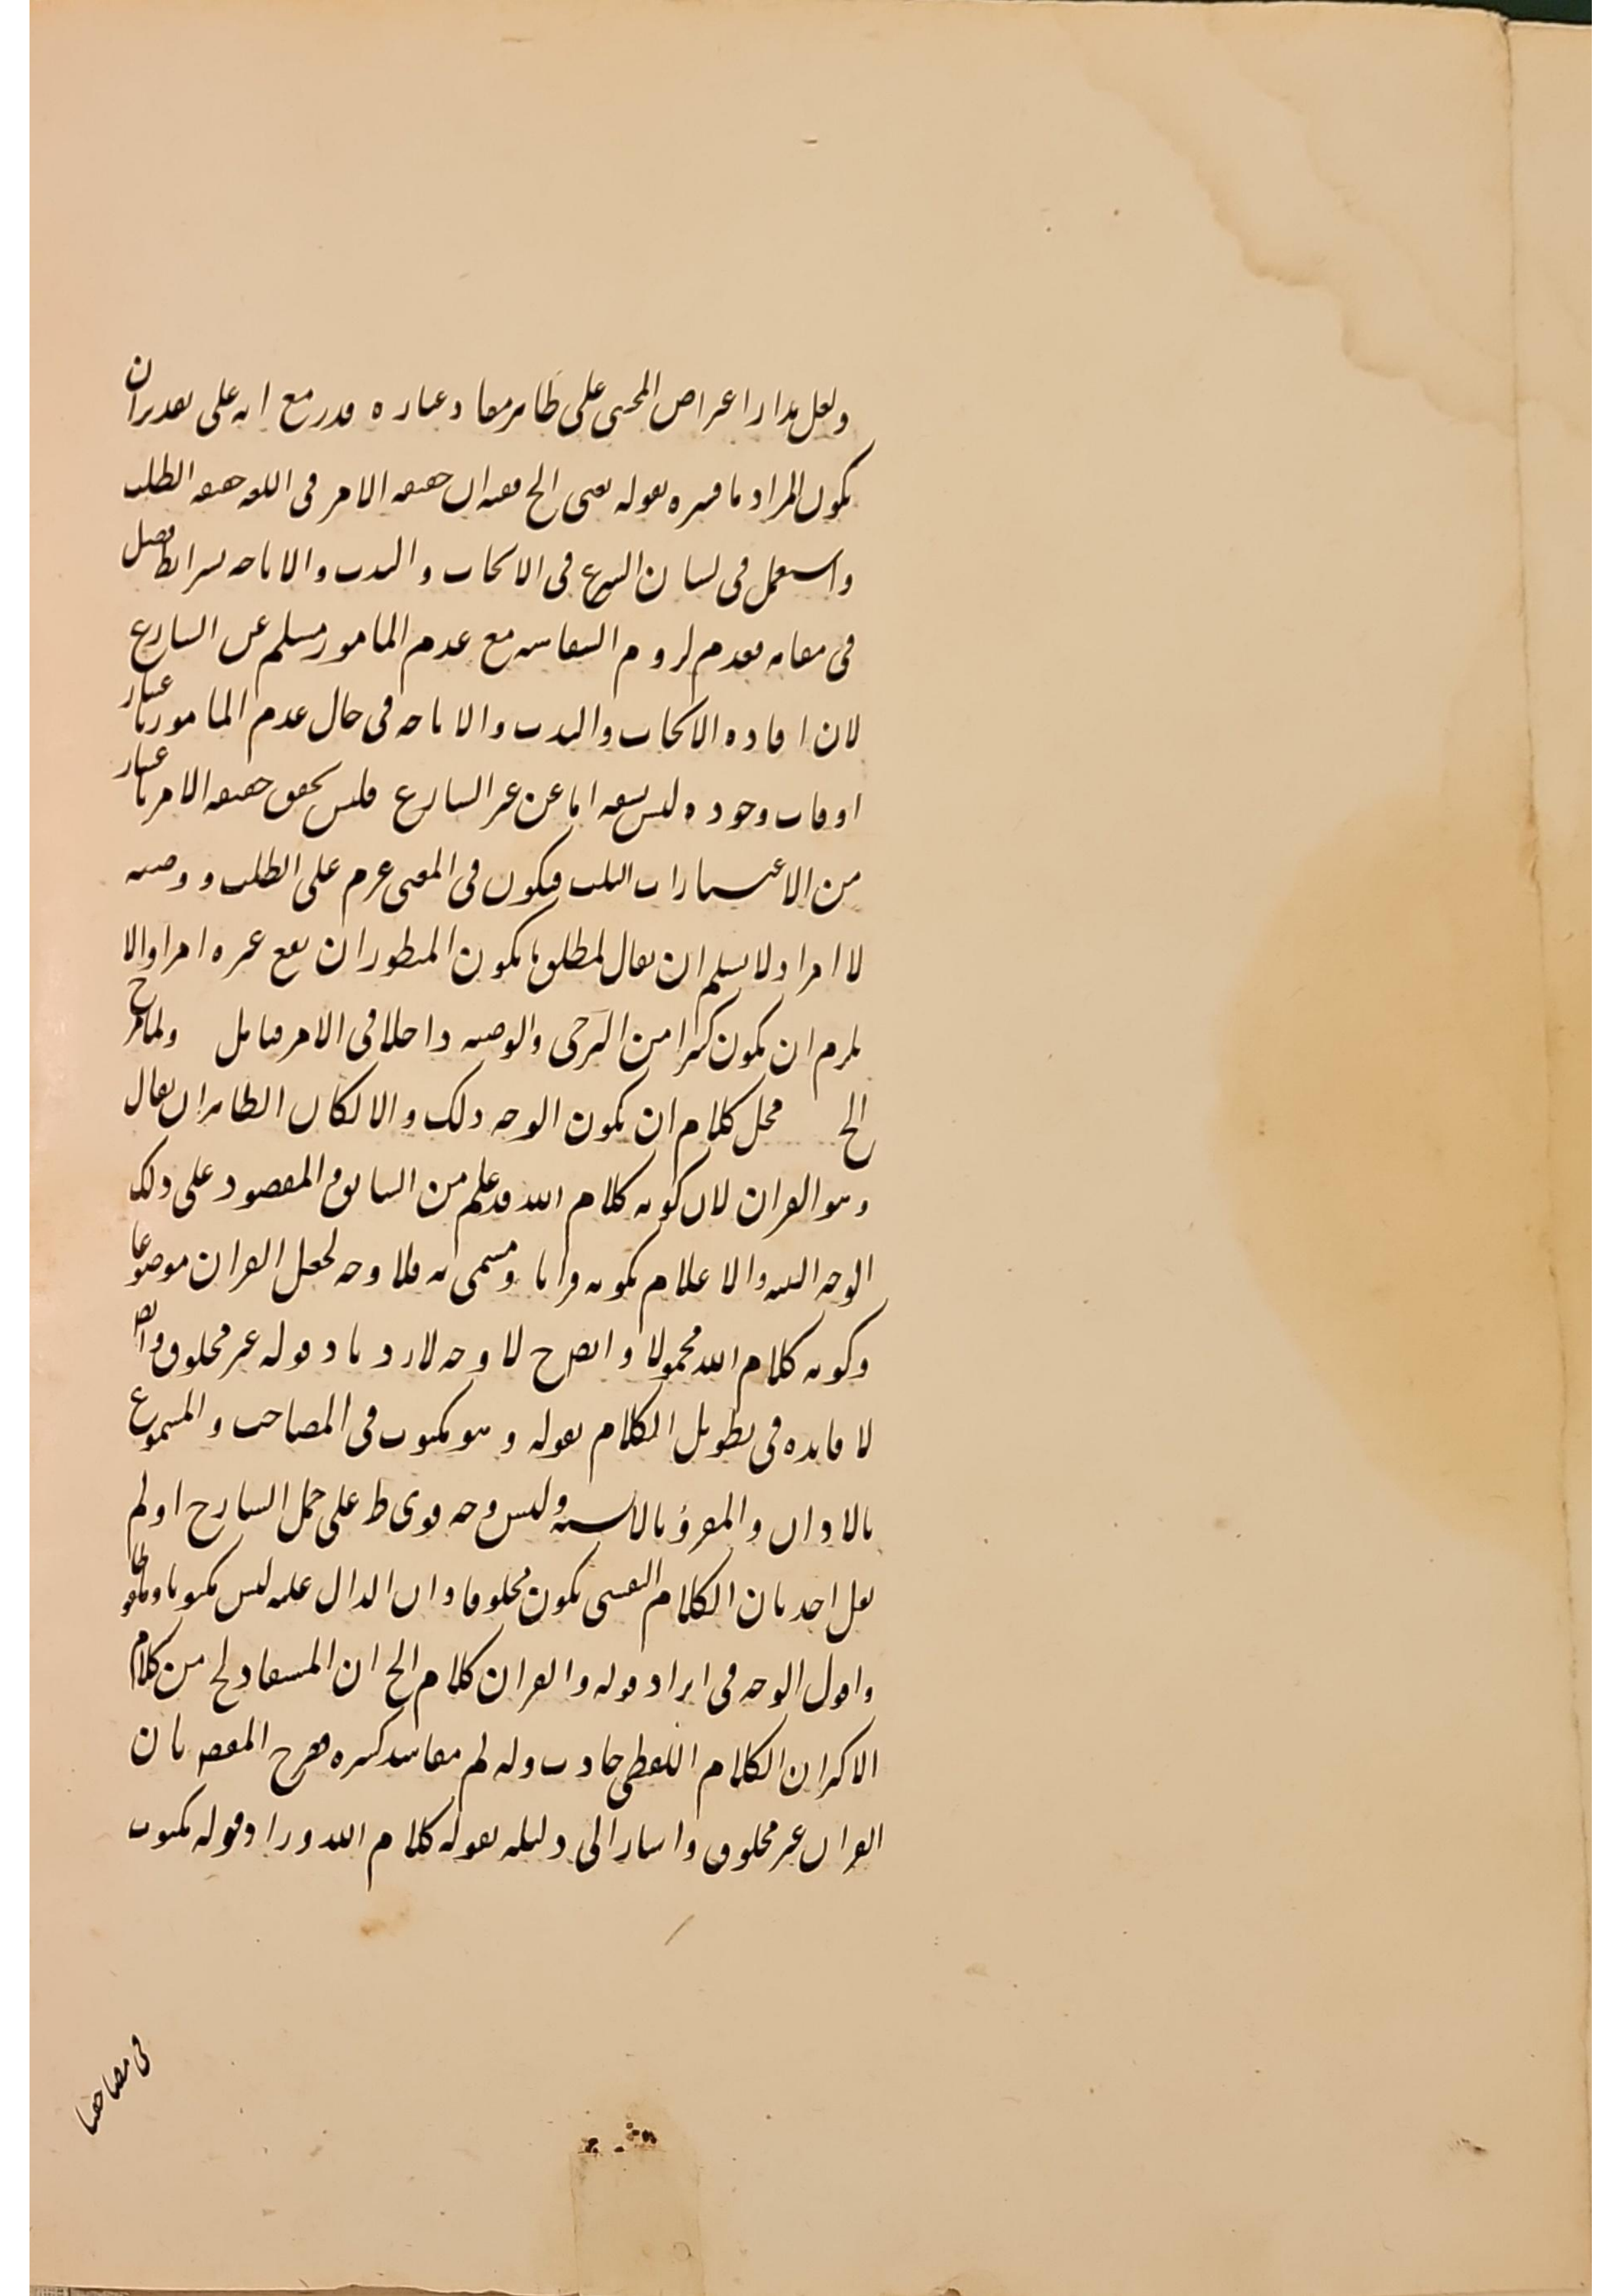 ولعل مدار اعتراض المحشى على ظاهر مفاد عبارة قدر مع انه على تقدير ان
يكون المراد ما فسره بقوله يعنى الخ ففيه ان حقيقة الامر فى اللغة حقيقة الطلب
واستعمل فى لسان الشرع فى الايجاب والندب والاباحة بشرائط فصل
فى مقامه فعدم لزوم السفاهة مع عدم المامور مسلم عن الشارع
لان افادة الايجاب والندب والاباحة فى حال عدم المامور باعتبار
اوقات وجوده ليس بسفه اما عن غير الشارع فليس يحقق حقيقة الامر باعتبار
من الاعتبارات الثلث فيكون فى المعنى عزم على الطلب ووصية
لا امرا ولا يسلم ان يقال لمطلق ما يكون المنظور ان يقع غيره امرا والا
يلزم ان يكون كثيرا من الترجى والوصية داخلا فى الامر فتامل ولما صرح
الخ محل كلام ان يكون الوجه ذلك والا لكان الظاهر ان يقال
وهو القران لان كونه كلام الله قد علم من السابق و المقصود على ذلك
الوجه التنبيه والاعلام بكونه قرانا ومسمى به فلا وجه لجعل القران موضوعا
وكونه كلام الله محمولا وايض ح لا وجه لازدياد قوله غير مخلوق وايض
لا فايدة فى تطويل الكلام بقوله وهو مكتوب فى المصاحف والمسموع
بالاذان والمقروّ بالالسنة وليس وجه قوى ط على حمل الشارح اذ لم
يقل احد بان الكلام النفسى يكون مخلوقا وان الدال عليه ليس مكتوبا وملفوظا
واقول الوجه فى ايراد قوله والقران كلام الخ ان المستفاد لح من كلام
الاكثر ان الكلام اللفظى حادث وله لم مفاسد كثيرة فصرح المصنف بان
القران غير مخلوق واشار الى دليله بقوله كلام الله وزاد قوله مكتوب
فى مصاحفنا